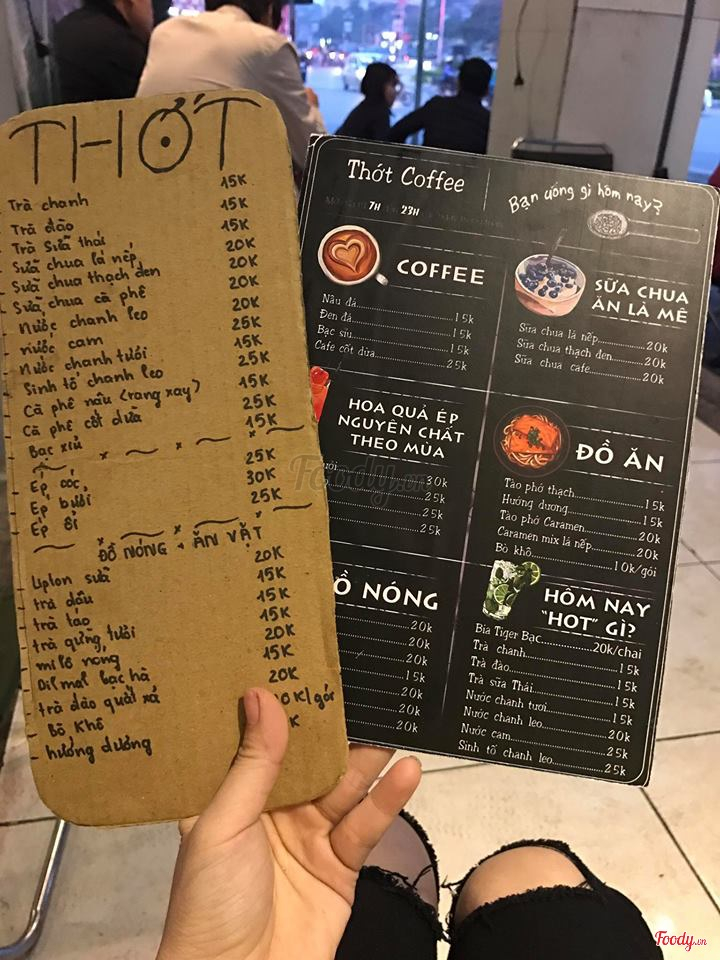 THỚT
- Trà chanh 15K
- Trà đào 15K
- Trà sữa thái 15K
- Sữa chua lá nếp 20K
- Sữa chua thạch đen 20K
- Sữa chua cà phê 20K
- Nước chanh leo 20K
- nước cam 25K
- Nước chanh tươi 15K
- Sinh tố chanh leo 25K
- Cà phê nâu (rang xay) 15K
- Cà phê cốt dừa 25K
- Bạc xỉu 15K
- Ép cóc 25K
- Ép bưởi 30K
- Ép ổi 25K
ĐỒ NÓNG + ĂN VẶT
- Lipton sữa 20K
- trà dâu 15K
- trà táo 15K
- trà gừng tươi 15K
- milo nóng 20K
- Dilmal bạc hà 15K
- trà đào quất xả 20K
- Bò khô 0K/gói
- hướng dương K
Thớt Coffee
7H 23H
Bạn uống gì hôm nay?
COFFEE
Nâu đá 15k
Đen đá 15k
Bạc sỉu 15k
Cafe cốt dừa 25k
SỮA CHUA
ĂN LÀ MÊ
Sữa chua lá nếp 20k
Sữa chua thạch đen 20k
Sữa chua cafe 20k
HOA QUẢ ÉP
NGUYÊN CHẤT
THEO MÙA
30k
25k
25k
25k
ĐỒ ĂN
Tào phớ thạch 15k
Hướng dương 15k
Tào phớ Caramen 20k
Caramen mix lá nếp 20k
Bò khô 10k/gói
Ồ NÓNG
20k
20k
20k
15k
20k
20k
20k
HÔM NAY
"HOT" GÌ?
Bia Tiger Bạc 20k/chai
Trà chanh 15k
Trà đào 15k
Trà sữa Thái 15k
Nước chanh tươi 15k
Nước chanh leo 20k
Nước cam 25k
Sinh tố chanh leo 25k
Foody.vn
Foody.vn